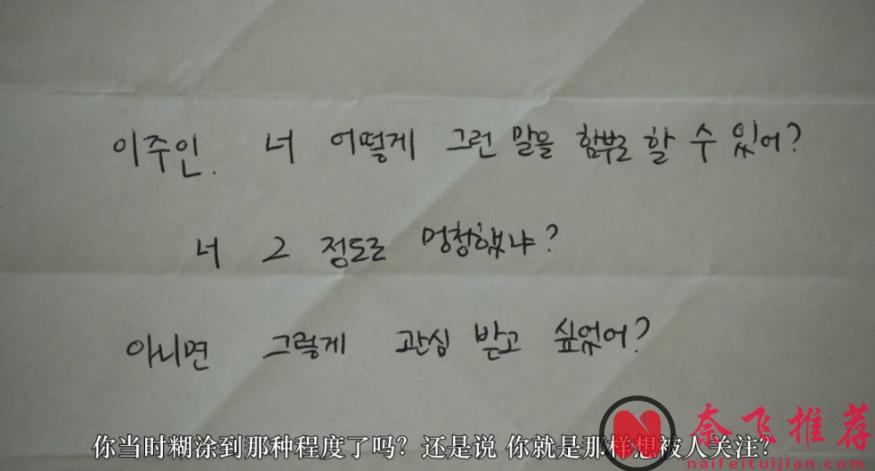 이주인. 너 어떻게 그런 말을 함부로 할 수 있어?
너 그 정도로 멍청했냐?
아니면 그렇게 관심 받고 싶었어?
你当时糊涂到那种程度了吗？还是说 你就是那样想被人关注？
奈飞推荐
naifeituijian.com